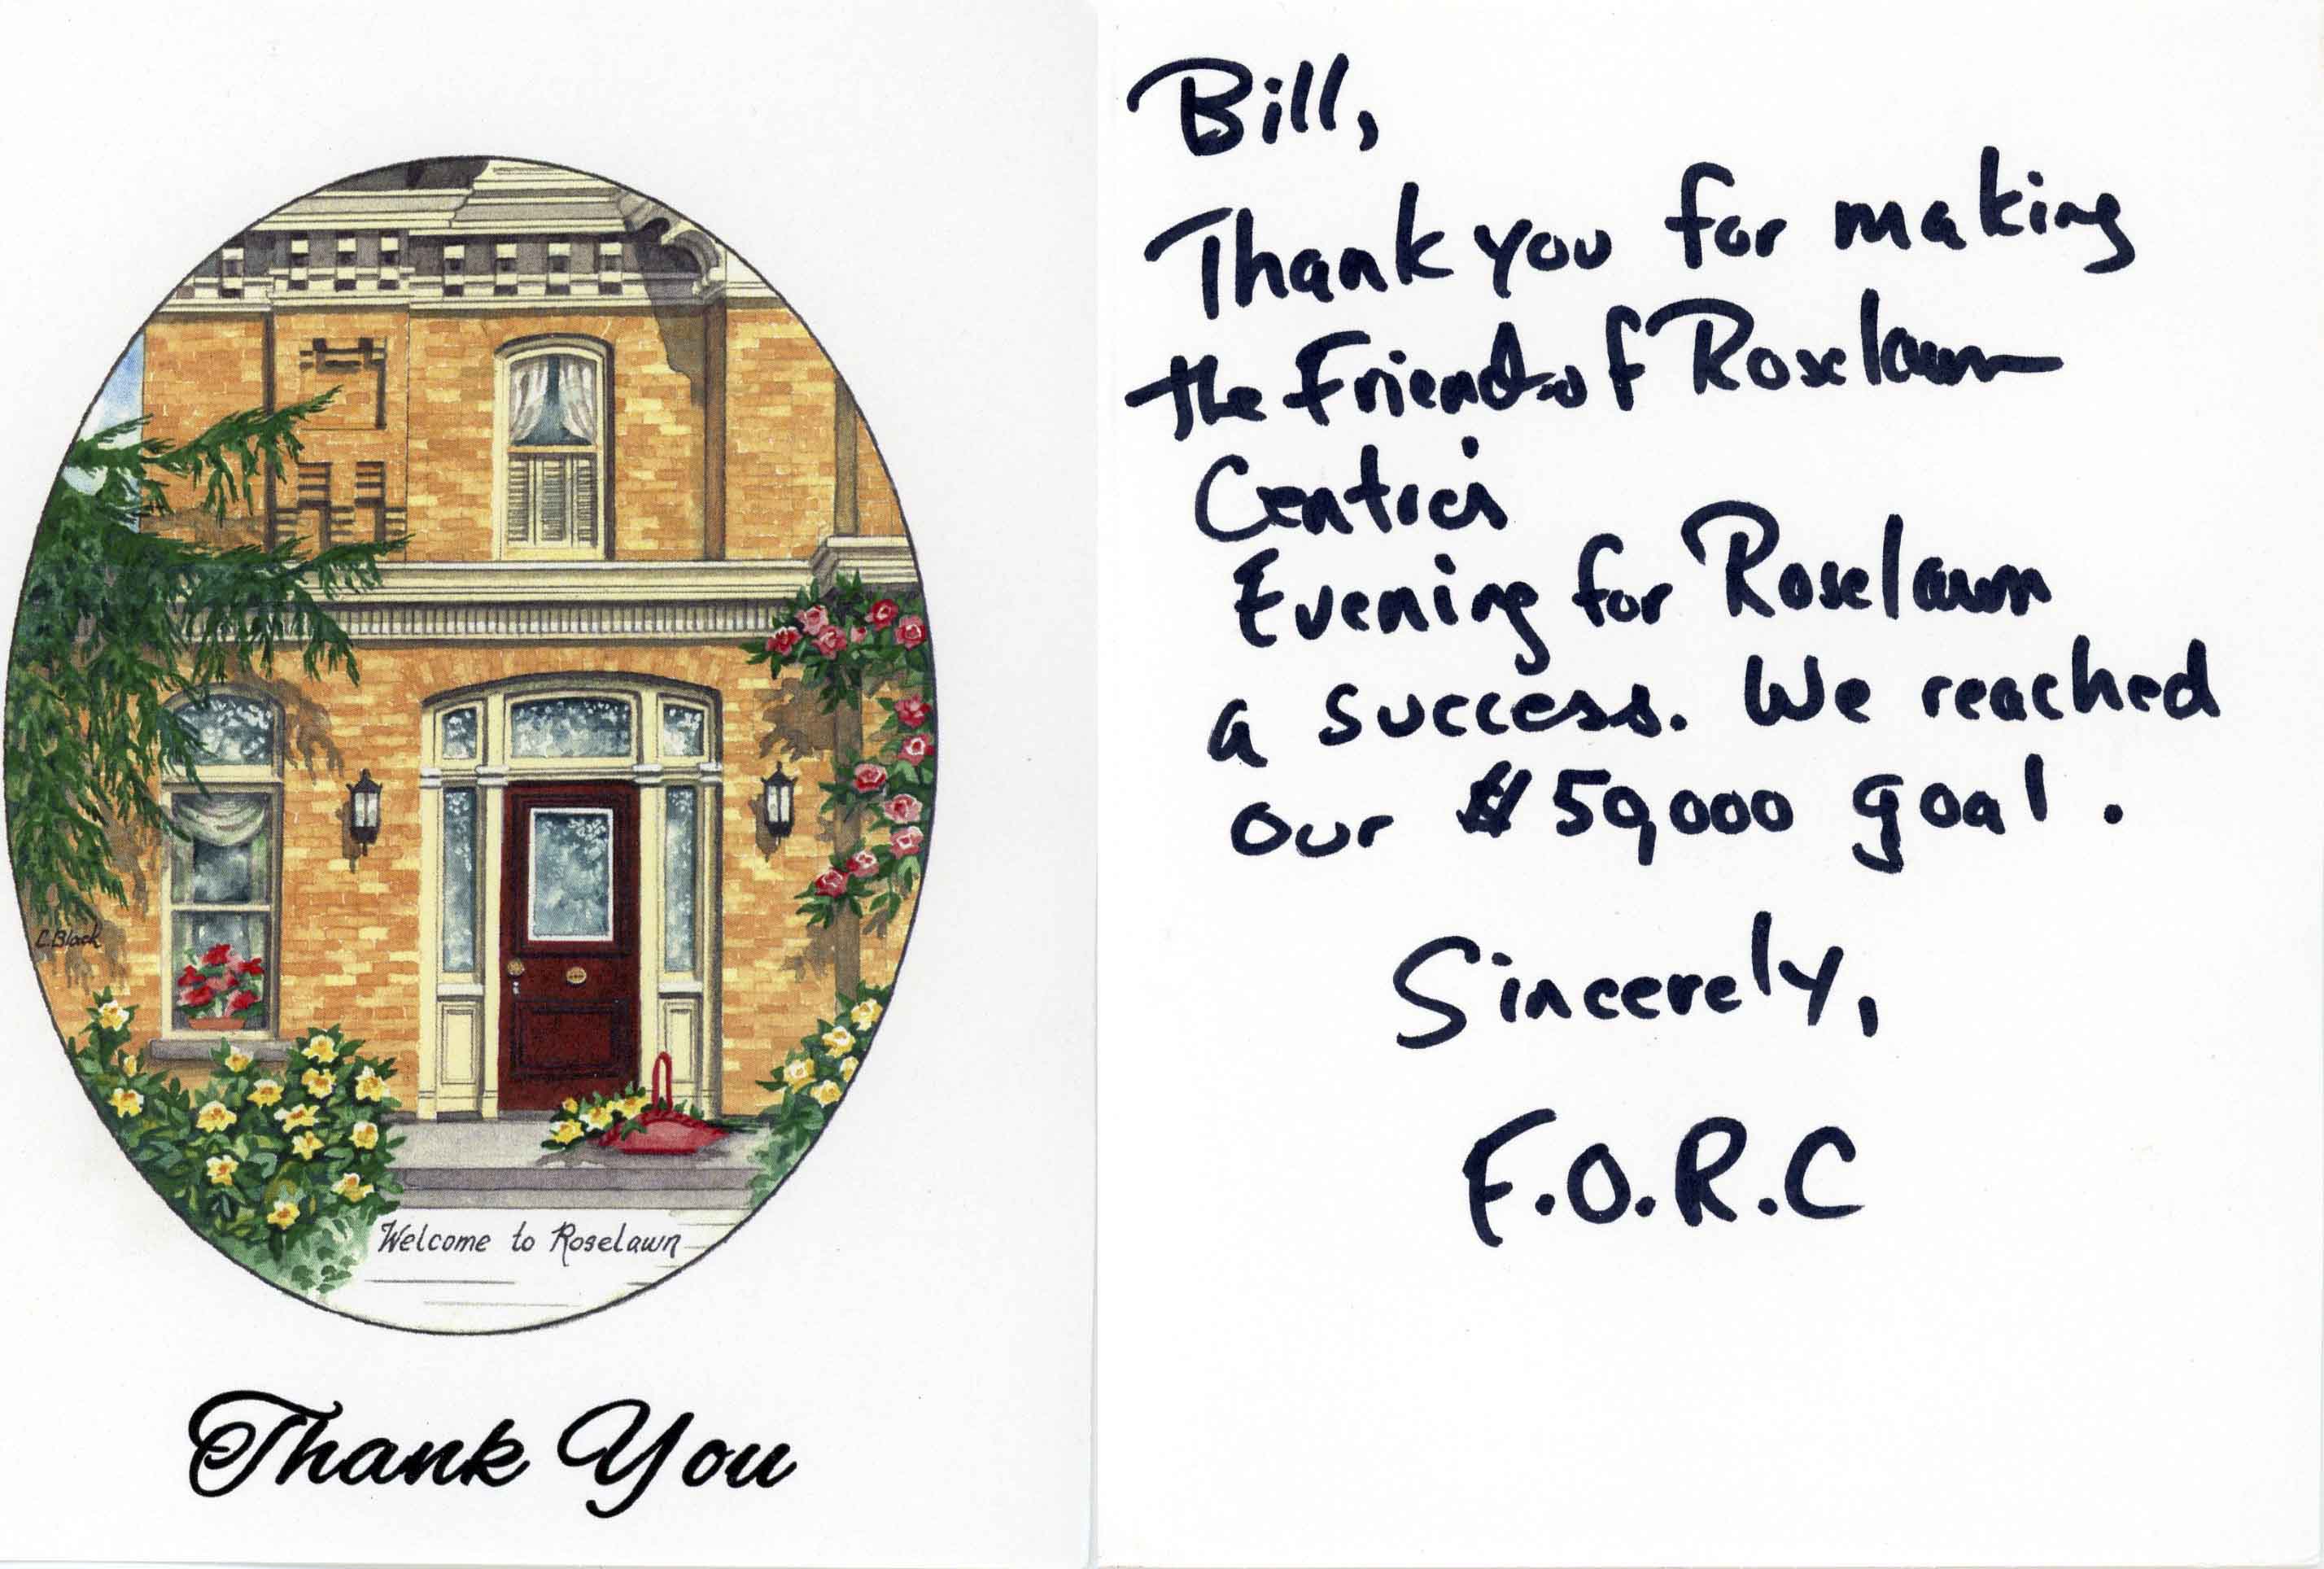 C. Black
Welcome to Roselawn
Thank You
Bill,
Thank you for making
the Friends of Roselawn
Centre's
Evening for Roselawn
a success. We reached
our $50,000 goal.
Sincerely,
F.O.R.C